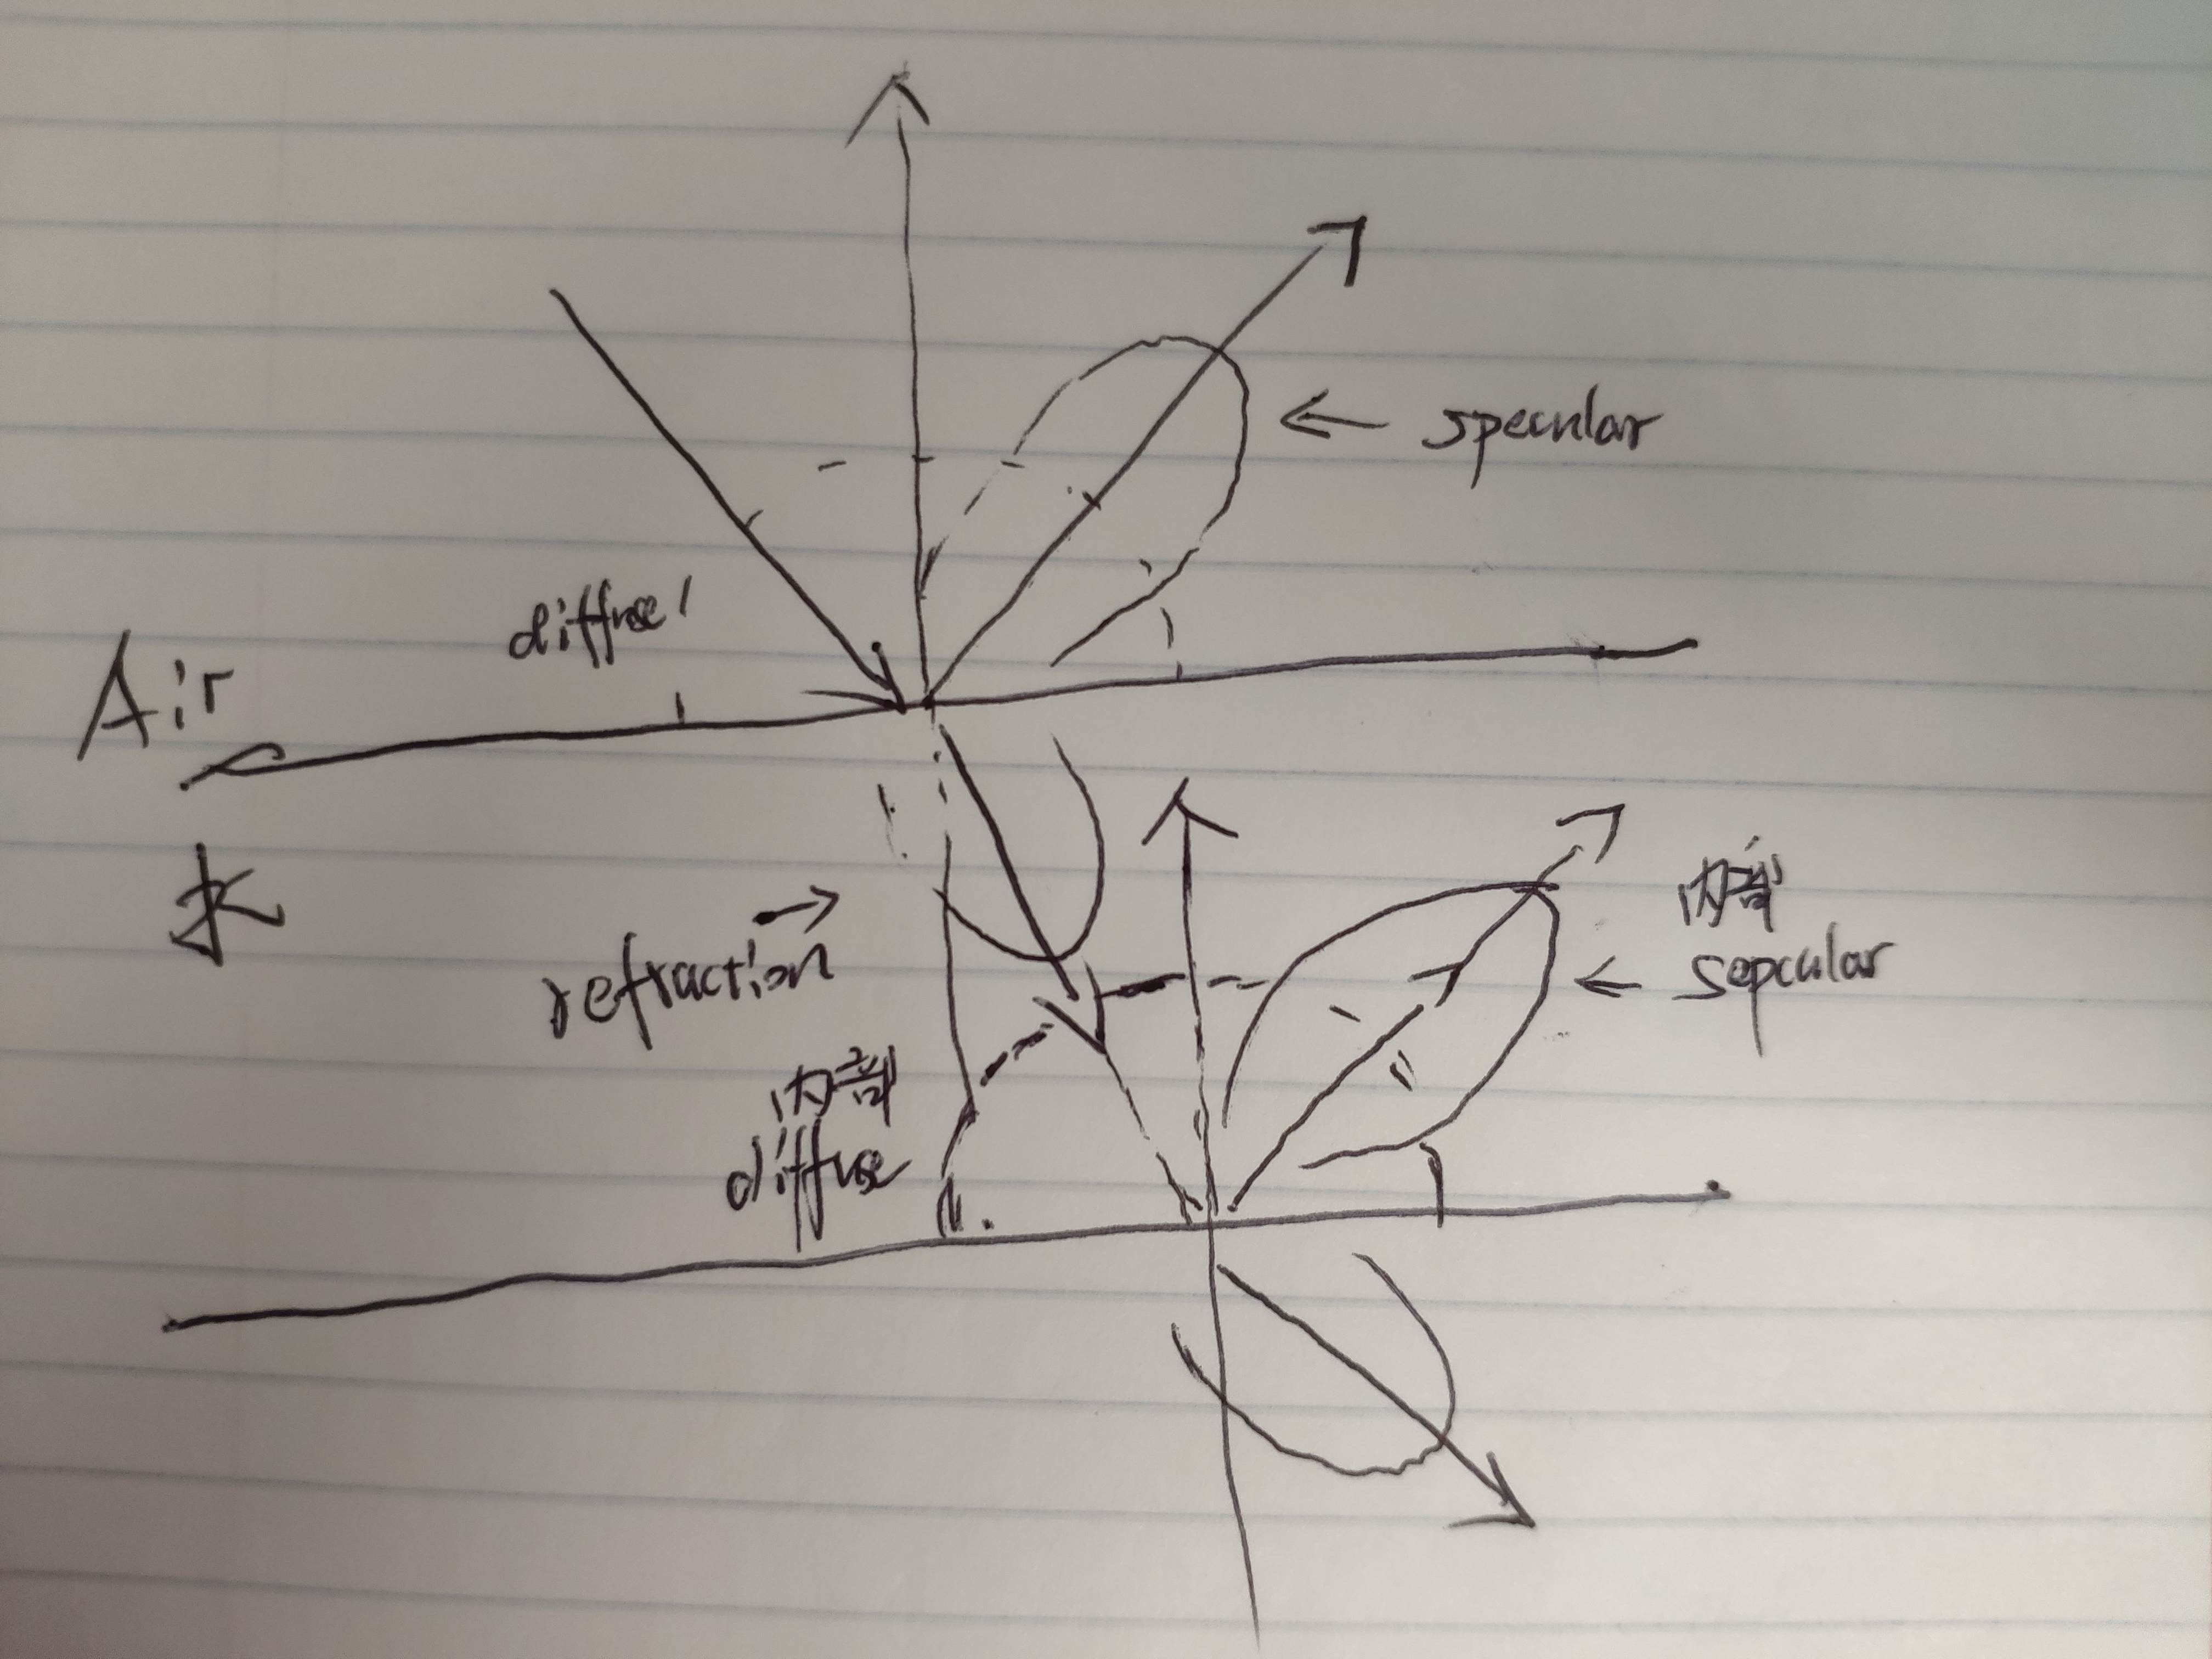 specular
diffuse
Air
水
refraction
内部
sepcular
内部
diffuse